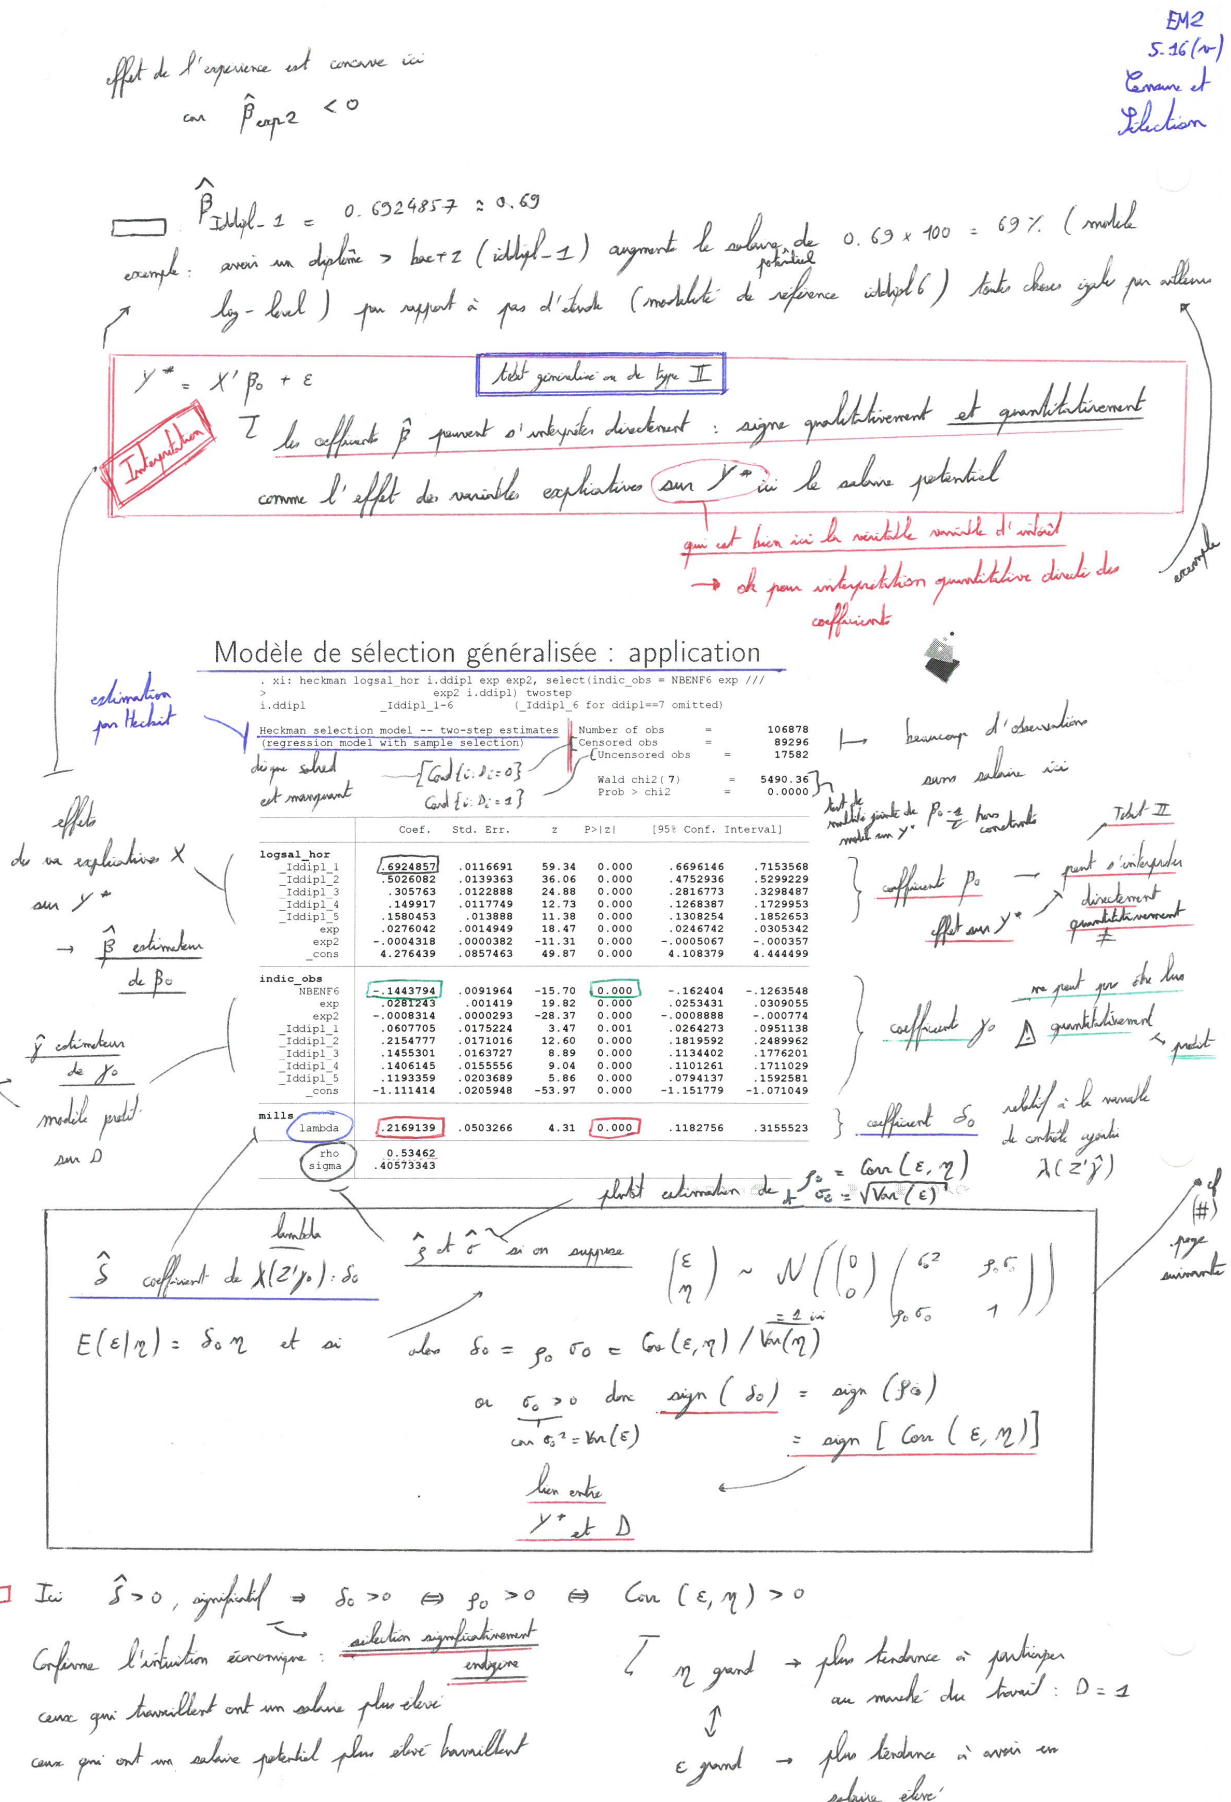 EM2
5.16(v)
Censure et
Sélection
effet de l'experience est concave ici
car β̂ exp2 < 0
β̂ Iddipl_1 = 0.6924857 ≈ 0.69
exemple : avoir un diplôme > bac+2 (iddipl_1) augmente le salaire potentiel de 0.69 × 100 = 69 % (modèle
log-level) par rapport à pas d'étude (modalité de référence iddipl6) toutes choses égales par ailleurs
Y* = X'β₀ + ε
tobit généralisé ou de type II
Interprétation
les coefficients β̂ peuvent s'interpréter directement : signe qualitativement et quantitativement
comme l'effet des variables explicatives sur Y* ici le salaire potentiel
qui est bien ici la véritable variable d'intérêt
→ ok pour interprétation quantitative directe des
coefficients
exemple
Modèle de sélection généralisée : application
. xi: heckman logsal_hor i.ddipl exp exp2, select(indic_obs = NBENF6 exp ///
> exp2 i.ddipl) twostep
i.ddipl _Iddipl_1-6 (_Iddipl_6 for ddipl==7 omitted)
estimation
par Heckit
Heckman selection model -- two-step estimates Number of obs = 106878
(regression model with sample selection) Censored obs = 89296
Uncensored obs = 17582
Wald chi2(7) = 5490.36
Prob > chi2 = 0.0000
dès que salred
est manquant
[Card {i: Di=0}
Card {i: Di=1}]
beaucoup d'observations
sans salaire ici
test de
nullité jointe de β₀
model sur Y* hors
constante
Coef. Std. Err. z P>|z| [95% Conf. Interval]
logsal_hor
_Iddipl_1 .6924857 .0116691 59.34 0.000 .6696146 .7153568
_Iddipl_2 .5026082 .0139363 36.06 0.000 .4752936 .5299229
_Iddipl_3 .305763 .0122888 24.88 0.000 .2816773 .3298487
_Iddipl_4 .149917 .0117749 12.73 0.000 .1268387 .1729953
_Iddipl_5 .1580453 .013888 11.38 0.000 .1308254 .1852653
exp .0276042 .0014949 18.47 0.000 .0246742 .0305342
exp2 -.0004318 .0000382 -11.31 0.000 -.0005067 -.000357
_cons 4.276439 .0857463 49.87 0.000 4.108379 4.444499
indic_obs
NBENF6 -.1443794 .0091964 -15.70 0.000 -.162404 -.1263548
exp .0281243 .001419 19.82 0.000 .0253431 .0309055
exp2 -.0008314 .0000293 -28.37 0.000 -.0008888 -.000774
_Iddipl_1 .0607705 .0175224 3.47 0.001 .0264273 .0951138
_Iddipl_2 .2154777 .0171016 12.60 0.000 .1819592 .2489962
_Iddipl_3 .1455301 .0163727 8.89 0.000 .1134402 .1776201
_Iddipl_4 .1406145 .0155556 9.04 0.000 .1101261 .1711029
_Iddipl_5 .1193359 .0203689 5.86 0.000 .0794137 .1592581
_cons -1.111414 .0205948 -53.97 0.000 -1.151779 -1.071049
mills
lambda .2169139 .0503266 4.31 0.000 .1182756 .3155523
rho 0.53462
sigma .40573343
effets
des va explicatives X
sur Y*
→ β̂ estimateur
de β₀
γ̂ estimateur
de γ₀
modèle probit
sur D
coefficients β₀ → peut s'interpréter
directement
quantitativement
≠
effet sur Y*
Tobit II
coefficients γ₀ ⚠ ne peut pas être lus
quantitativement
probit
coefficient δ₀ relatif à la variable
de contrôle ajoutée
λ(Z'γ̂)
plutôt estimation de ρ₀ = Corr(ε, η)
et σ₀ = √Var(ε)
cf
(#)
page
suivante
lambda
δ̂ coefficient de λ(Z'γ₀) : δ₀
ρ̂ et σ̂ si on suppose (ε η) ~ N((0 0) (σ₀² ρ₀σ₀ ρ₀σ₀ 1))
E(ε|η) = δ₀ η et si alors δ₀ = ρ₀ σ₀ = Cov(ε, η) / Var(η)
= 1 ici
or σ₀ > 0 donc sign(δ₀) = sign(ρ₀)
car σ₀² = Var(ε)
= sign [Corr(ε, η)]
lien entre
Y* et D
Ici δ̂ > 0, significatif ⇒ δ₀ > 0 ⇔ ρ₀ > 0 ⇔ Corr(ε, η) > 0
Confirme l'intuition économique : sélection significativement
endogène
ceux qui travaillent ont un salaire plus élevé
ceux qui ont un salaire potentiel plus élevé travaillent
η grand → plus tendance à participer
au marché du travail : D = 1
⇕
ε grand → plus tendance à avoir un
salaire élevé